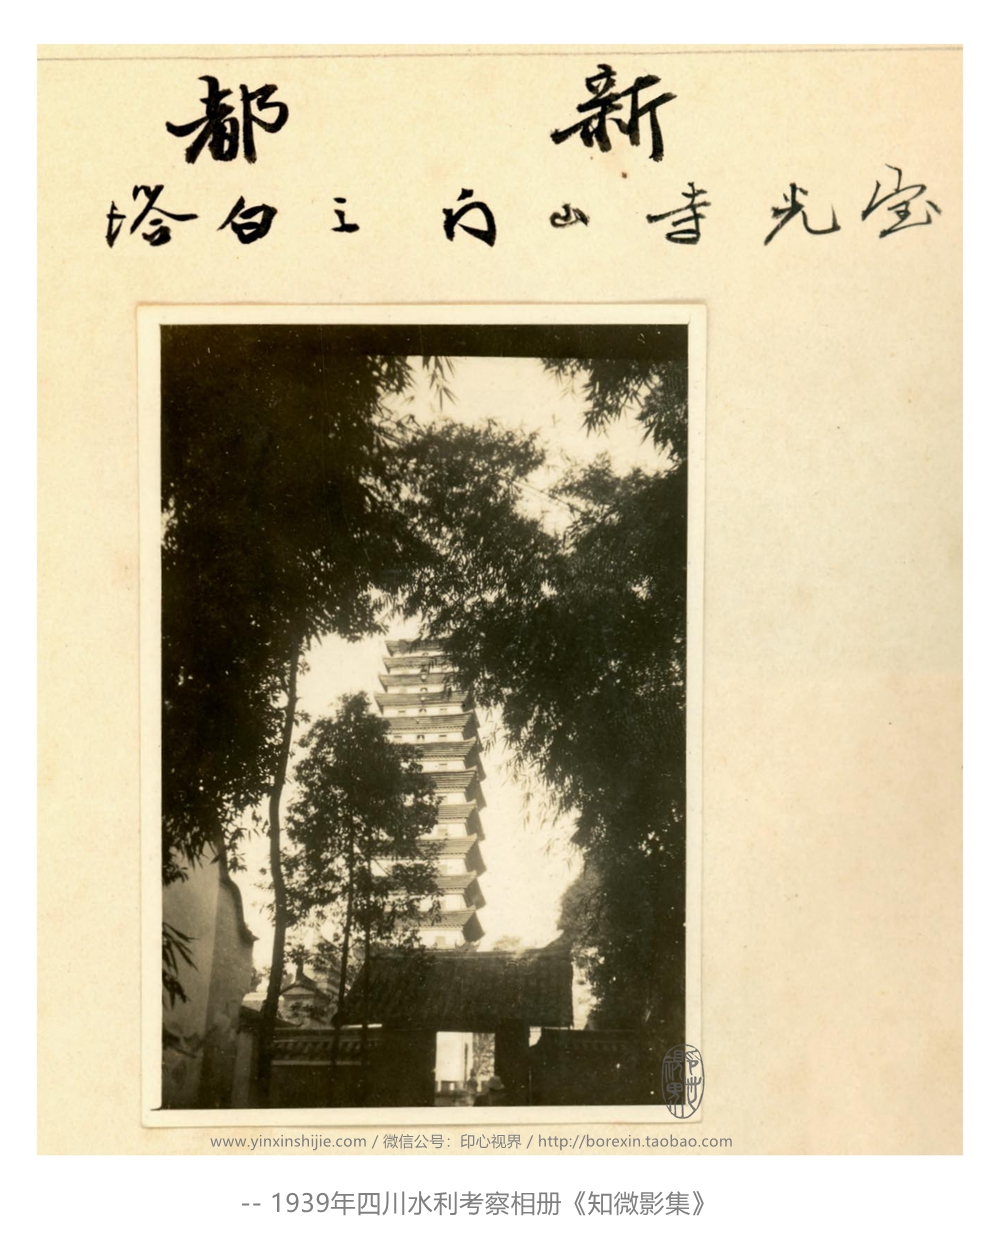 新都
宝光寺山门之白塔
www.yinxinshijie.com / 微信公号：印心视界 / http://borexin.taobao.com
-- 1939年四川水利考察相册《知微影集》